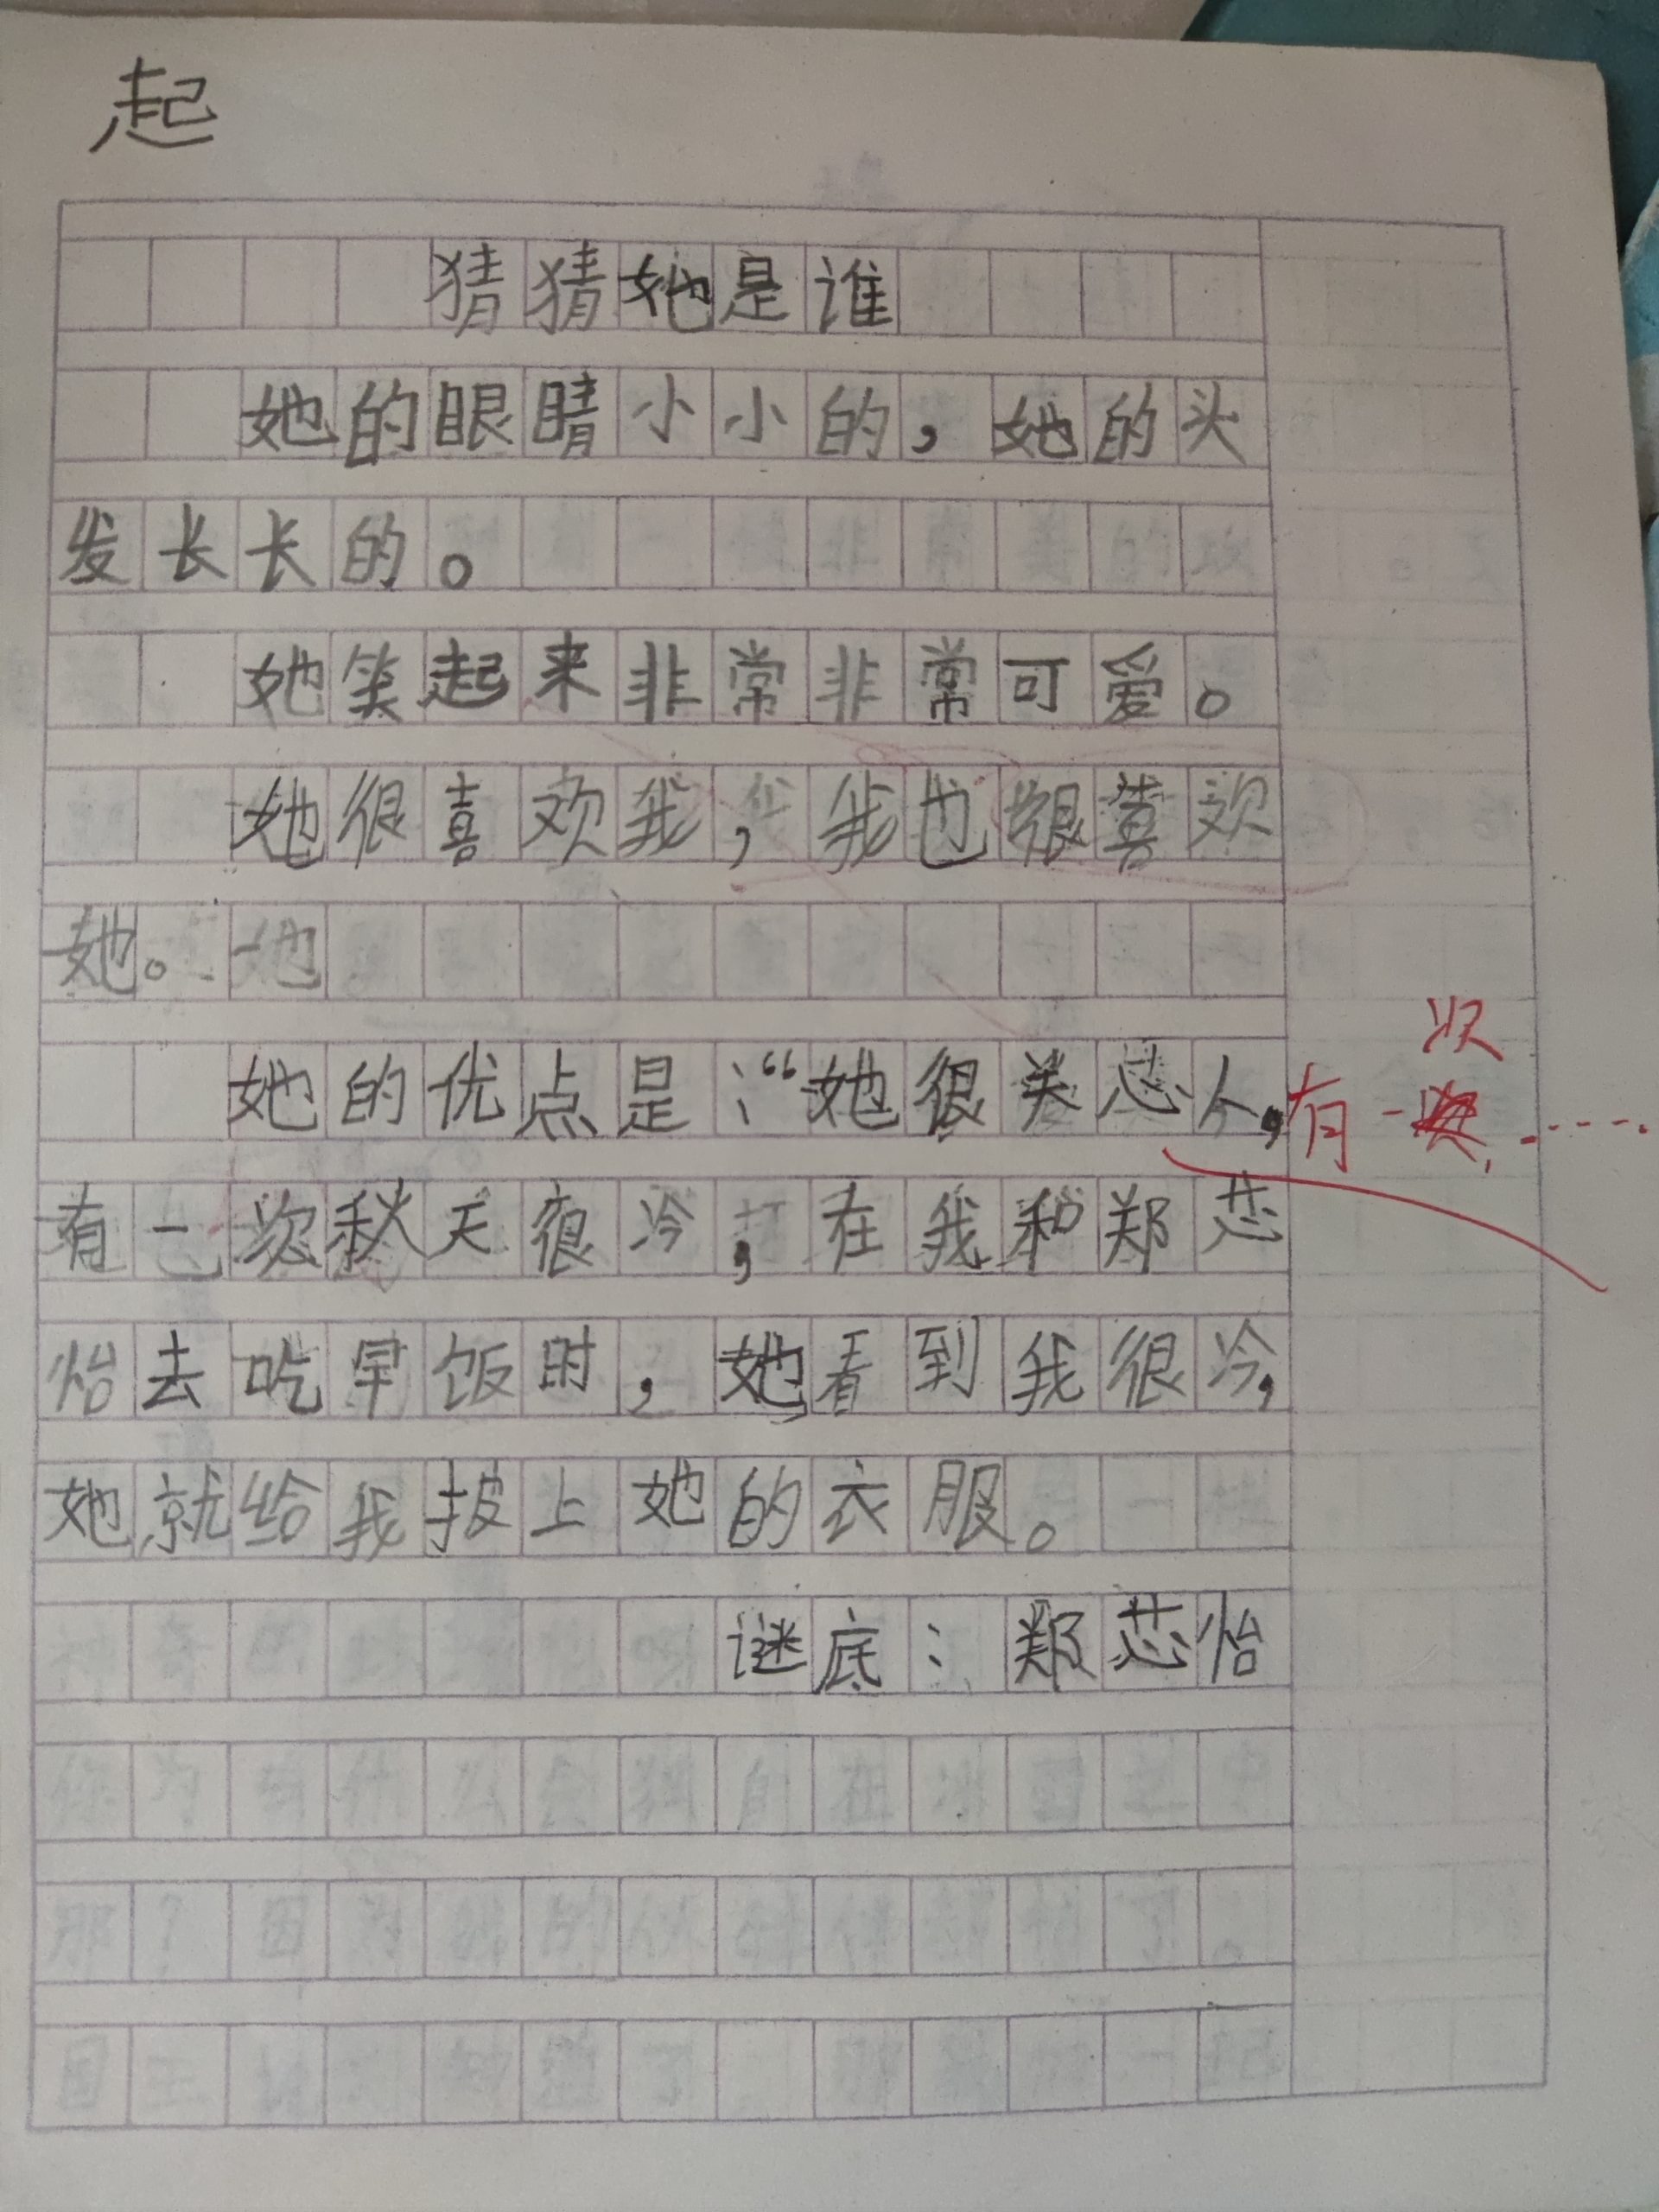 起
猜猜她是谁
她的眼睛小小的，她的头
发长长的。
她笑起来非常非常可爱。
她很喜欢我，我也很喜欢
她。
她的优点是：“她很关芯人，有一次，……
有一次秋天很冷，在我和郑芯
怡去吃早饭时，她看到我很冷，
她就给我披上她的衣服。
谜底：郑芯怡